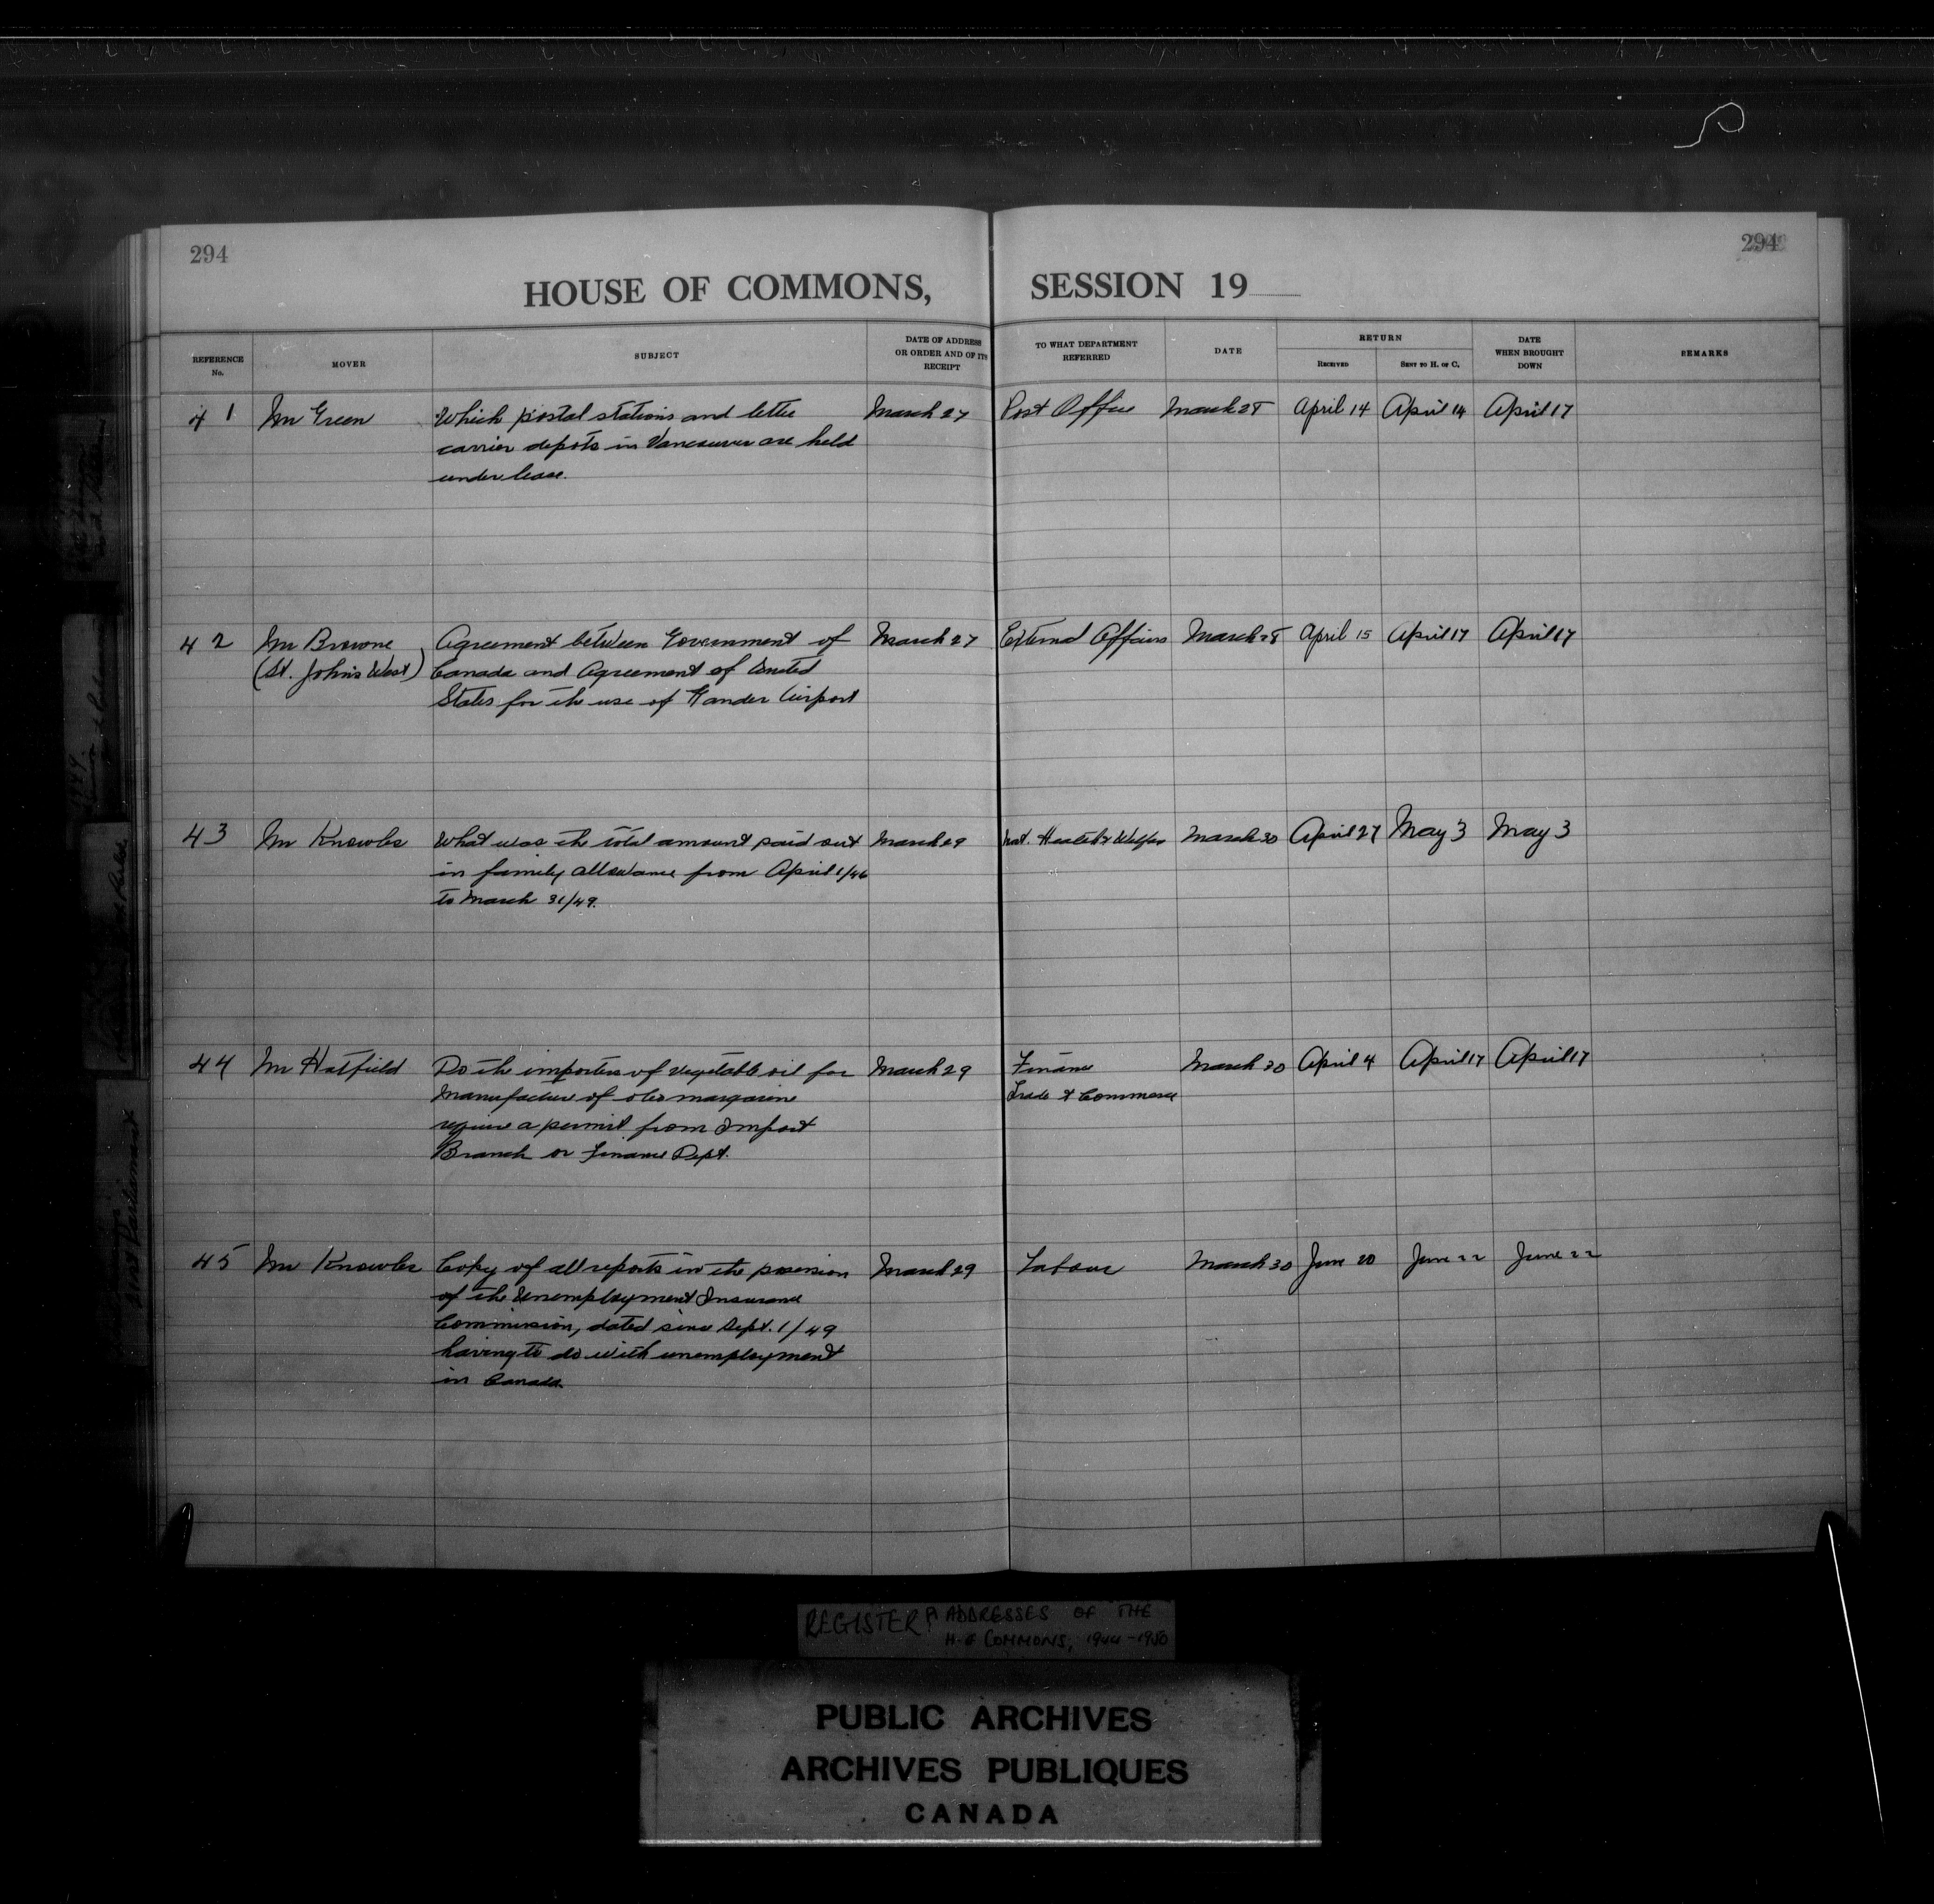 294
294
HOUSE OF COMMONS, SESSION 19
REFERENCE No.
MOVER
SUBJECT
DATE OF ADDRESS OR ORDER AND OF ITS RECEIPT
TO WHAT DEPARTMENT REFERRED
DATE
RETURN
RECEIVED
SENT TO H. OF C.
DATE WHEN BROUGHT DOWN
REMARKS
41 Mr Green Which postal stations and letter March 27 Post Office March 28 April 14 April 14 April 17
carrier depots in Vancouver are held
under lease.
42 Mr Browne Agreement between Government of March 27 External Affairs March 28 April 15 April 17 April 17
(St. John's West) Canada and Agreement of United
States for the use of Gander Airport
43 Mr Knowles What was the total amount paid out March 29 Nat. Health & Welfare March 30 April 27 May 3 May 3
in family allowance from April 1/46
to March 31/49.
44 Mr Hatfield Do the importers of vegetable oil for March 29 Finance March 30 April 4 April 17 April 17
manufacture of oleo margarine Trade & Commerce
require a permit from Import
Branch or Finance Dept.
45 Mr Knowles Copy of all reports in the possession March 29 Labour March 30 June 20 June 22 June 22
of the Unemployment Insurance
Commission, dated since Sept. 1/49
having to do with unemployment
in Canada.
REGISTER ADDRESSES OF THE
H. of COMMONS, 1944-1950
PUBLIC ARCHIVES
ARCHIVES PUBLIQUES
CANADA